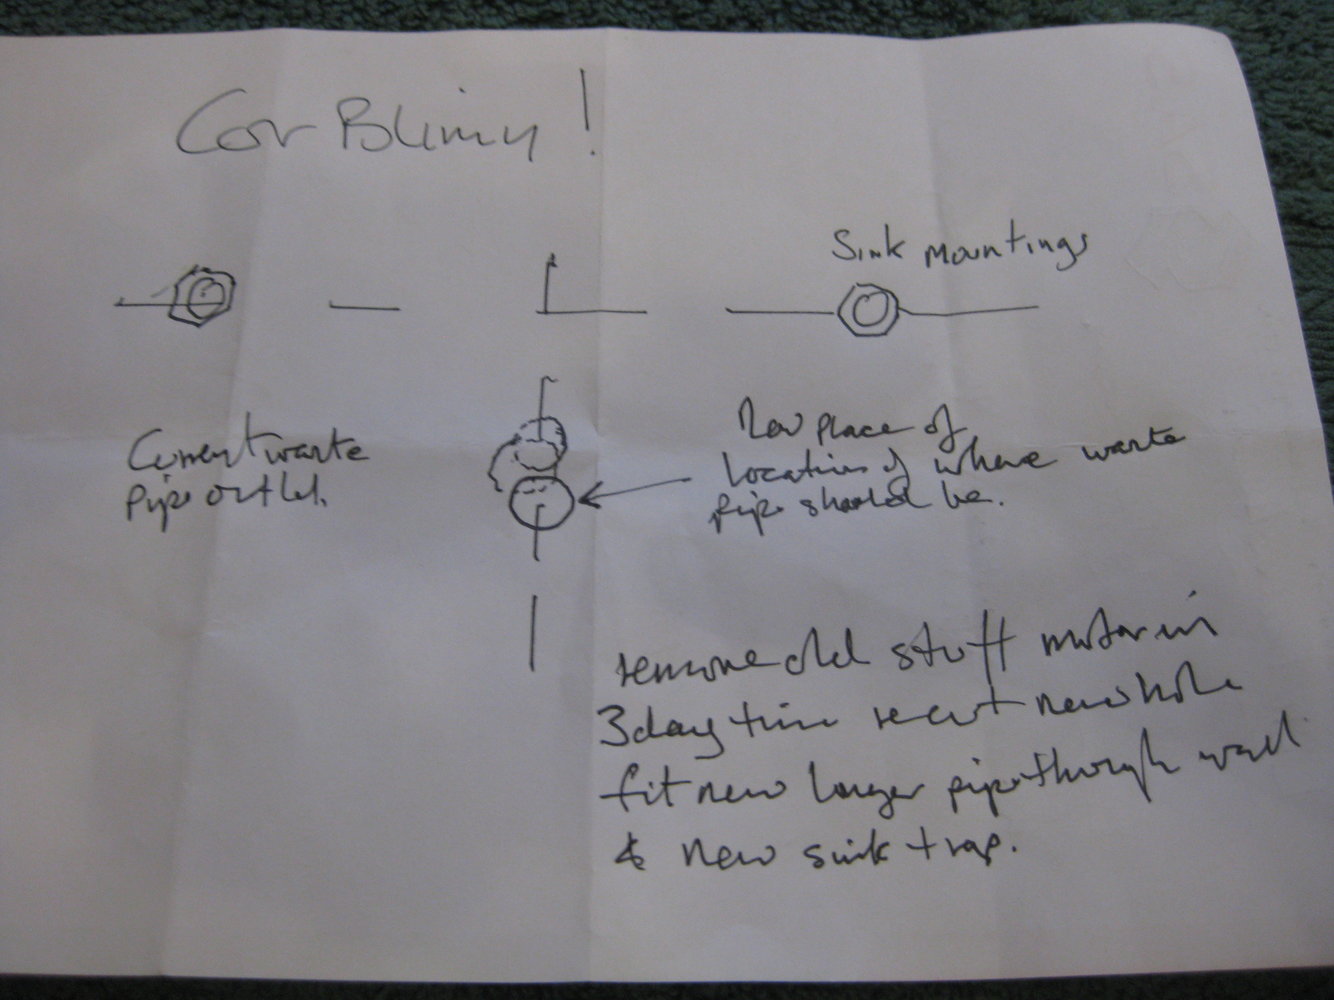 Cor Blimy!
Sink mountings
Current waste
pipe outlet.
New place of
location of where waste
pipe should be.
remove old stuff mortar in
3 day time recut new hole
fit new longer pipe through wall
& new sink trap.